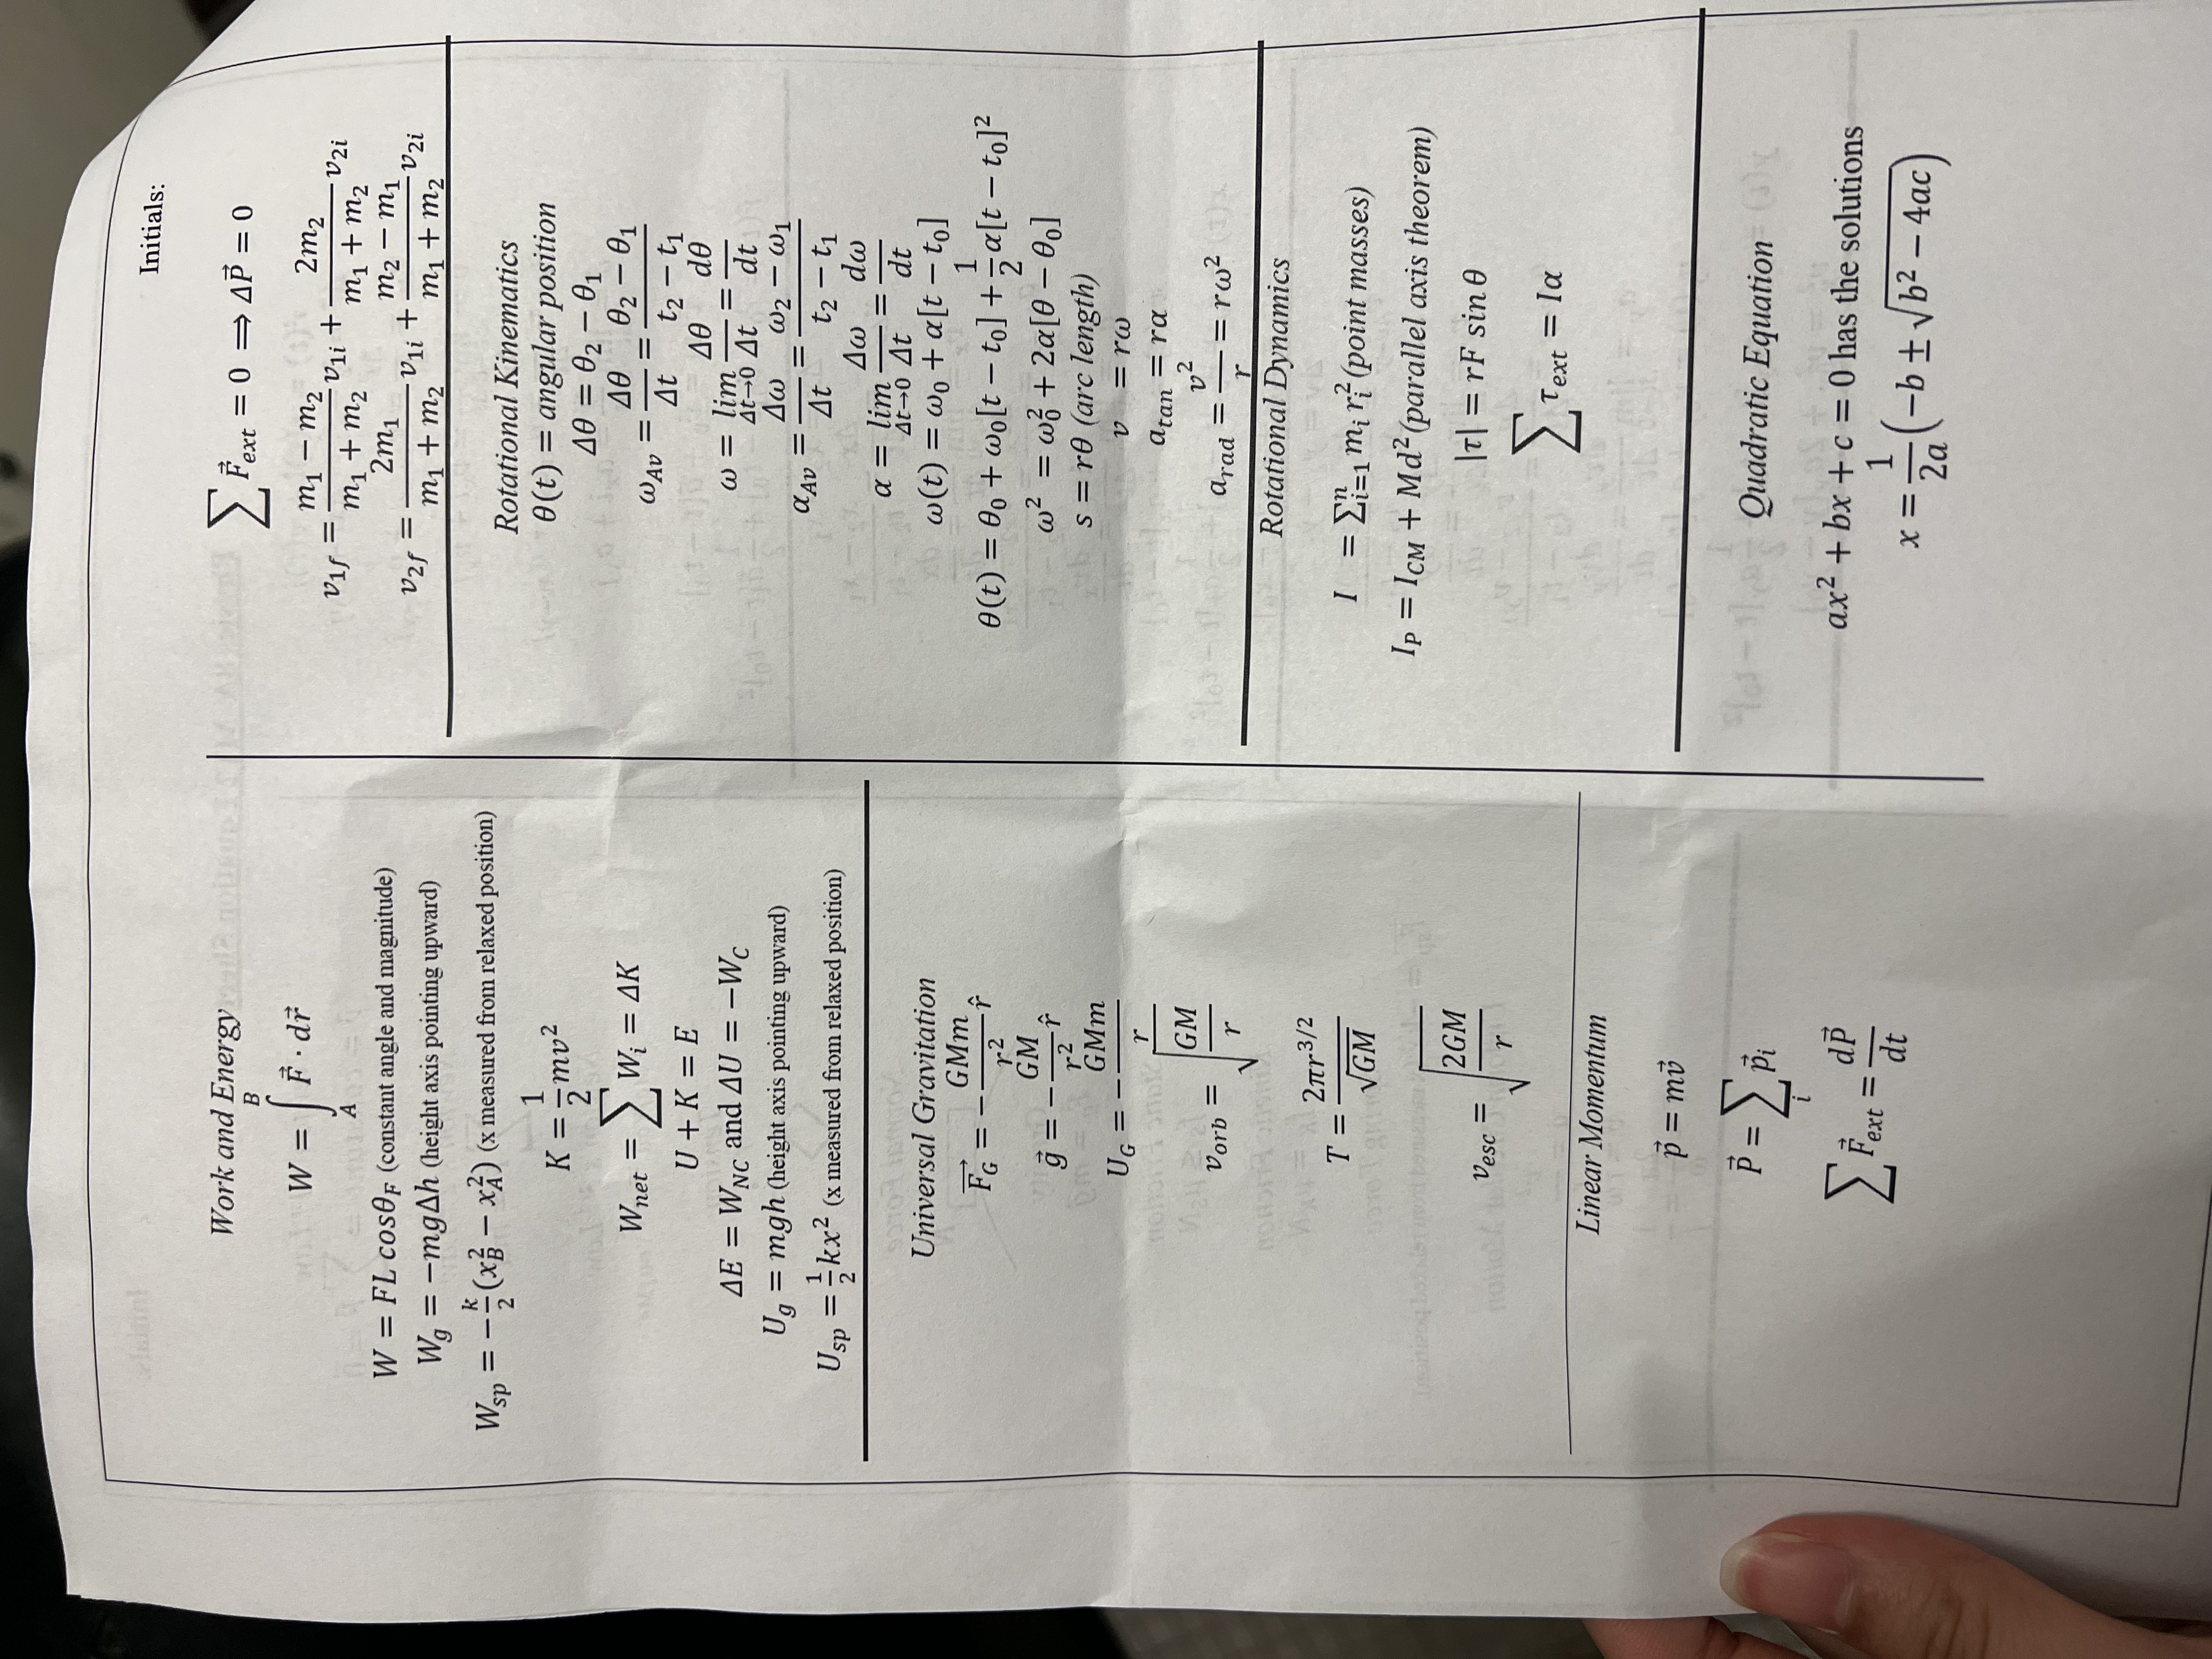 Initials:
Work and Energy
W = ∫_A^B F⃗ · dr⃗
W = FL cosθ_F (constant angle and magnitude)
W_g = −mgΔh (height axis pointing upward)
W_sp = −k/2 (x_B² − x_A²) (x measured from relaxed position)
K = 1/2 mv²
W_net = ∑ W_i = ΔK
U + K = E
ΔE = W_NC and ΔU = −W_C
U_g = mgh (height axis pointing upward)
U_sp = 1/2 kx² (x measured from relaxed position)
Universal Gravitation
F⃗_G = − GMm/r² r̂
g⃗ = − GM/r² r̂
U_G = − GMm/r
v_orb = √(GM/r)
T = 2πr^(3/2)/√GM
v_esc = √(2GM/r)
Linear Momentum
p⃗ = mv⃗
P⃗ = ∑_i p⃗_i
∑ F⃗_ext = dP⃗/dt
∑ F⃗_ext = 0 ⟹ ΔP⃗ = 0
v_1f = (m₁ − m₂)/(m₁ + m₂) v_1i + 2m₂/(m₁ + m₂) v_2i
v_2f = 2m₁/(m₁ + m₂) v_1i + (m₂ − m₁)/(m₁ + m₂) v_2i
Rotational Kinematics
θ(t) = angular position
Δθ = θ₂ − θ₁
ω_Av = Δθ/Δt = (θ₂ − θ₁)/(t₂ − t₁)
ω = lim_Δt→0 Δθ/Δt = dθ/dt
α_Av = Δω/Δt = (ω₂ − ω₁)/(t₂ − t₁)
α = lim_Δt→0 Δω/Δt = dω/dt
ω(t) = ω₀ + α[t − t₀]
θ(t) = θ₀ + ω₀[t − t₀] + 1/2 α[t − t₀]²
ω² = ω₀² + 2α[θ − θ₀]
s = rθ (arc length)
v = rω
a_tan = rα
a_rad = v²/r = rω²
Rotational Dynamics
I = ∑_{i=1}^n m_i r_i² (point masses)
I_P = I_CM + Md² (parallel axis theorem)
|τ| = rF sin θ
∑ τ_ext = Iα
Quadratic Equation
ax² + bx + c = 0 has the solutions
x = 1/2a (−b ± √(b² − 4ac))